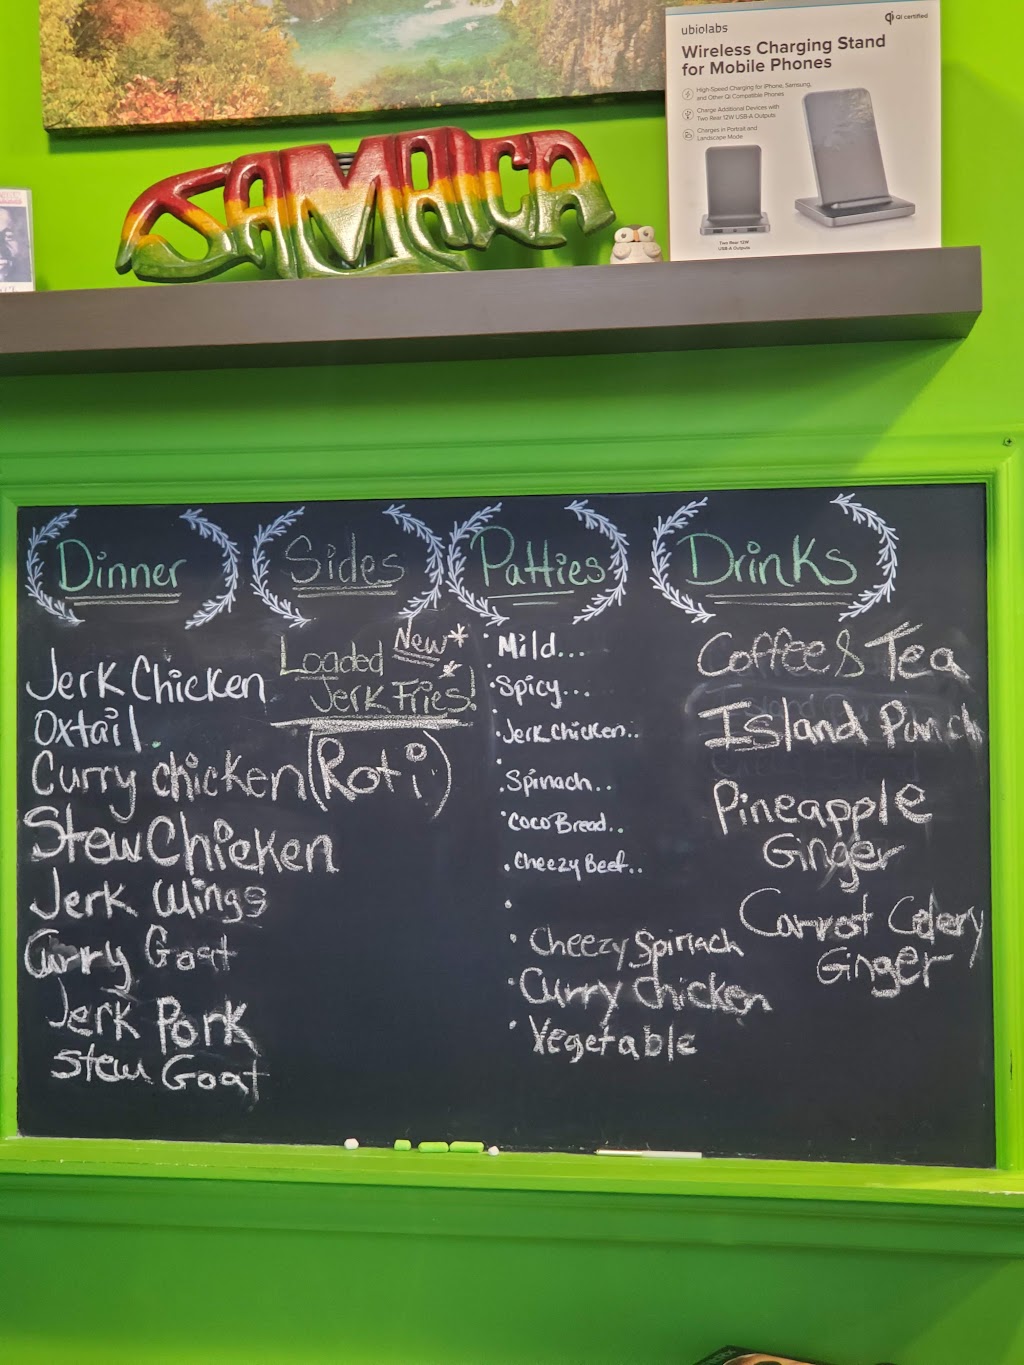 ubiolabs
Qi certified
Wireless Charging Stand
for Mobile Phones
High-Speed Charging for iPhone, Samsung,
and Other Qi Compatible Phones
Charge Additional Devices with
Two Rear 12W USB-A Outputs
Charges in Portrait and
Landscape Mode
Two Rear 12W
USB-A Outputs
JAMAICA
Dinner
Jerk Chicken
Oxtail.
Curry chicken (Roti)
Stew Chicken
Jerk Wings
Curry Goat
Jerk Pork
Stew Goat
Sides
New*
Loaded *
Jerk Fries!
Patties
Mild...
Spicy...
Jerk Chicken..
Spinach..
Coco Bread..
Cheezy Beef..
Cheezy Spinach
Curry Chicken
Vegetable
Drinks
Coffee & Tea
Island Punch
Pineapple
Ginger
Carrot Celery
Ginger